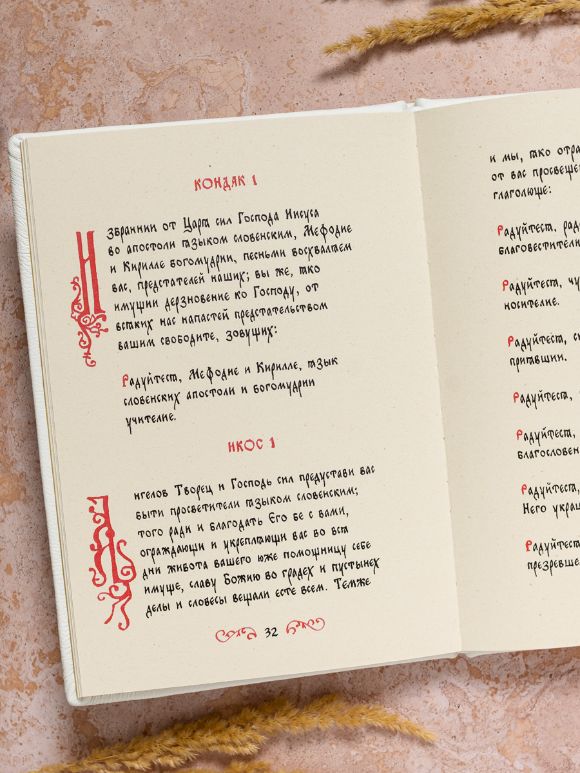 КОНДАК 1
Избраннии от Царя сил Господа Иисуса
во апостоли языком словенским, Мефодие
и Кирилле богомудрии, песньми восхваляем
вас, предстателей наших; вы же, яко
имущии дерзновение ко Господу, от
всяких нас напастей предстательством
вашим свободите, зовущих:
Радуйтеся, Мефодие и Кирилле, язык
словенских апостоли и богомудрии
учителие.
ИКОС 1
Ангелов Творец и Господь сил предустави вас
быти просветители языком словенским;
того ради и благодать Его бе с вами,
ограждающи и укрепляющи вас во вся
дни живота вашего юже помощницу себе
имуще, славу Божию во градех и пустынех
делы и словесы вещали есте всем. Темже
32
и мы, яко отра
от вас просвеще
глаголюще:
Радуйтеся, рад
благовестители
Радуйтеся, чу
носителие.
Радуйтеся, си
приявшии.
Радуйтеся,
Радуйтеся,
благословен
Радуйтеся,
Него украш
Радуйтеся
презревше